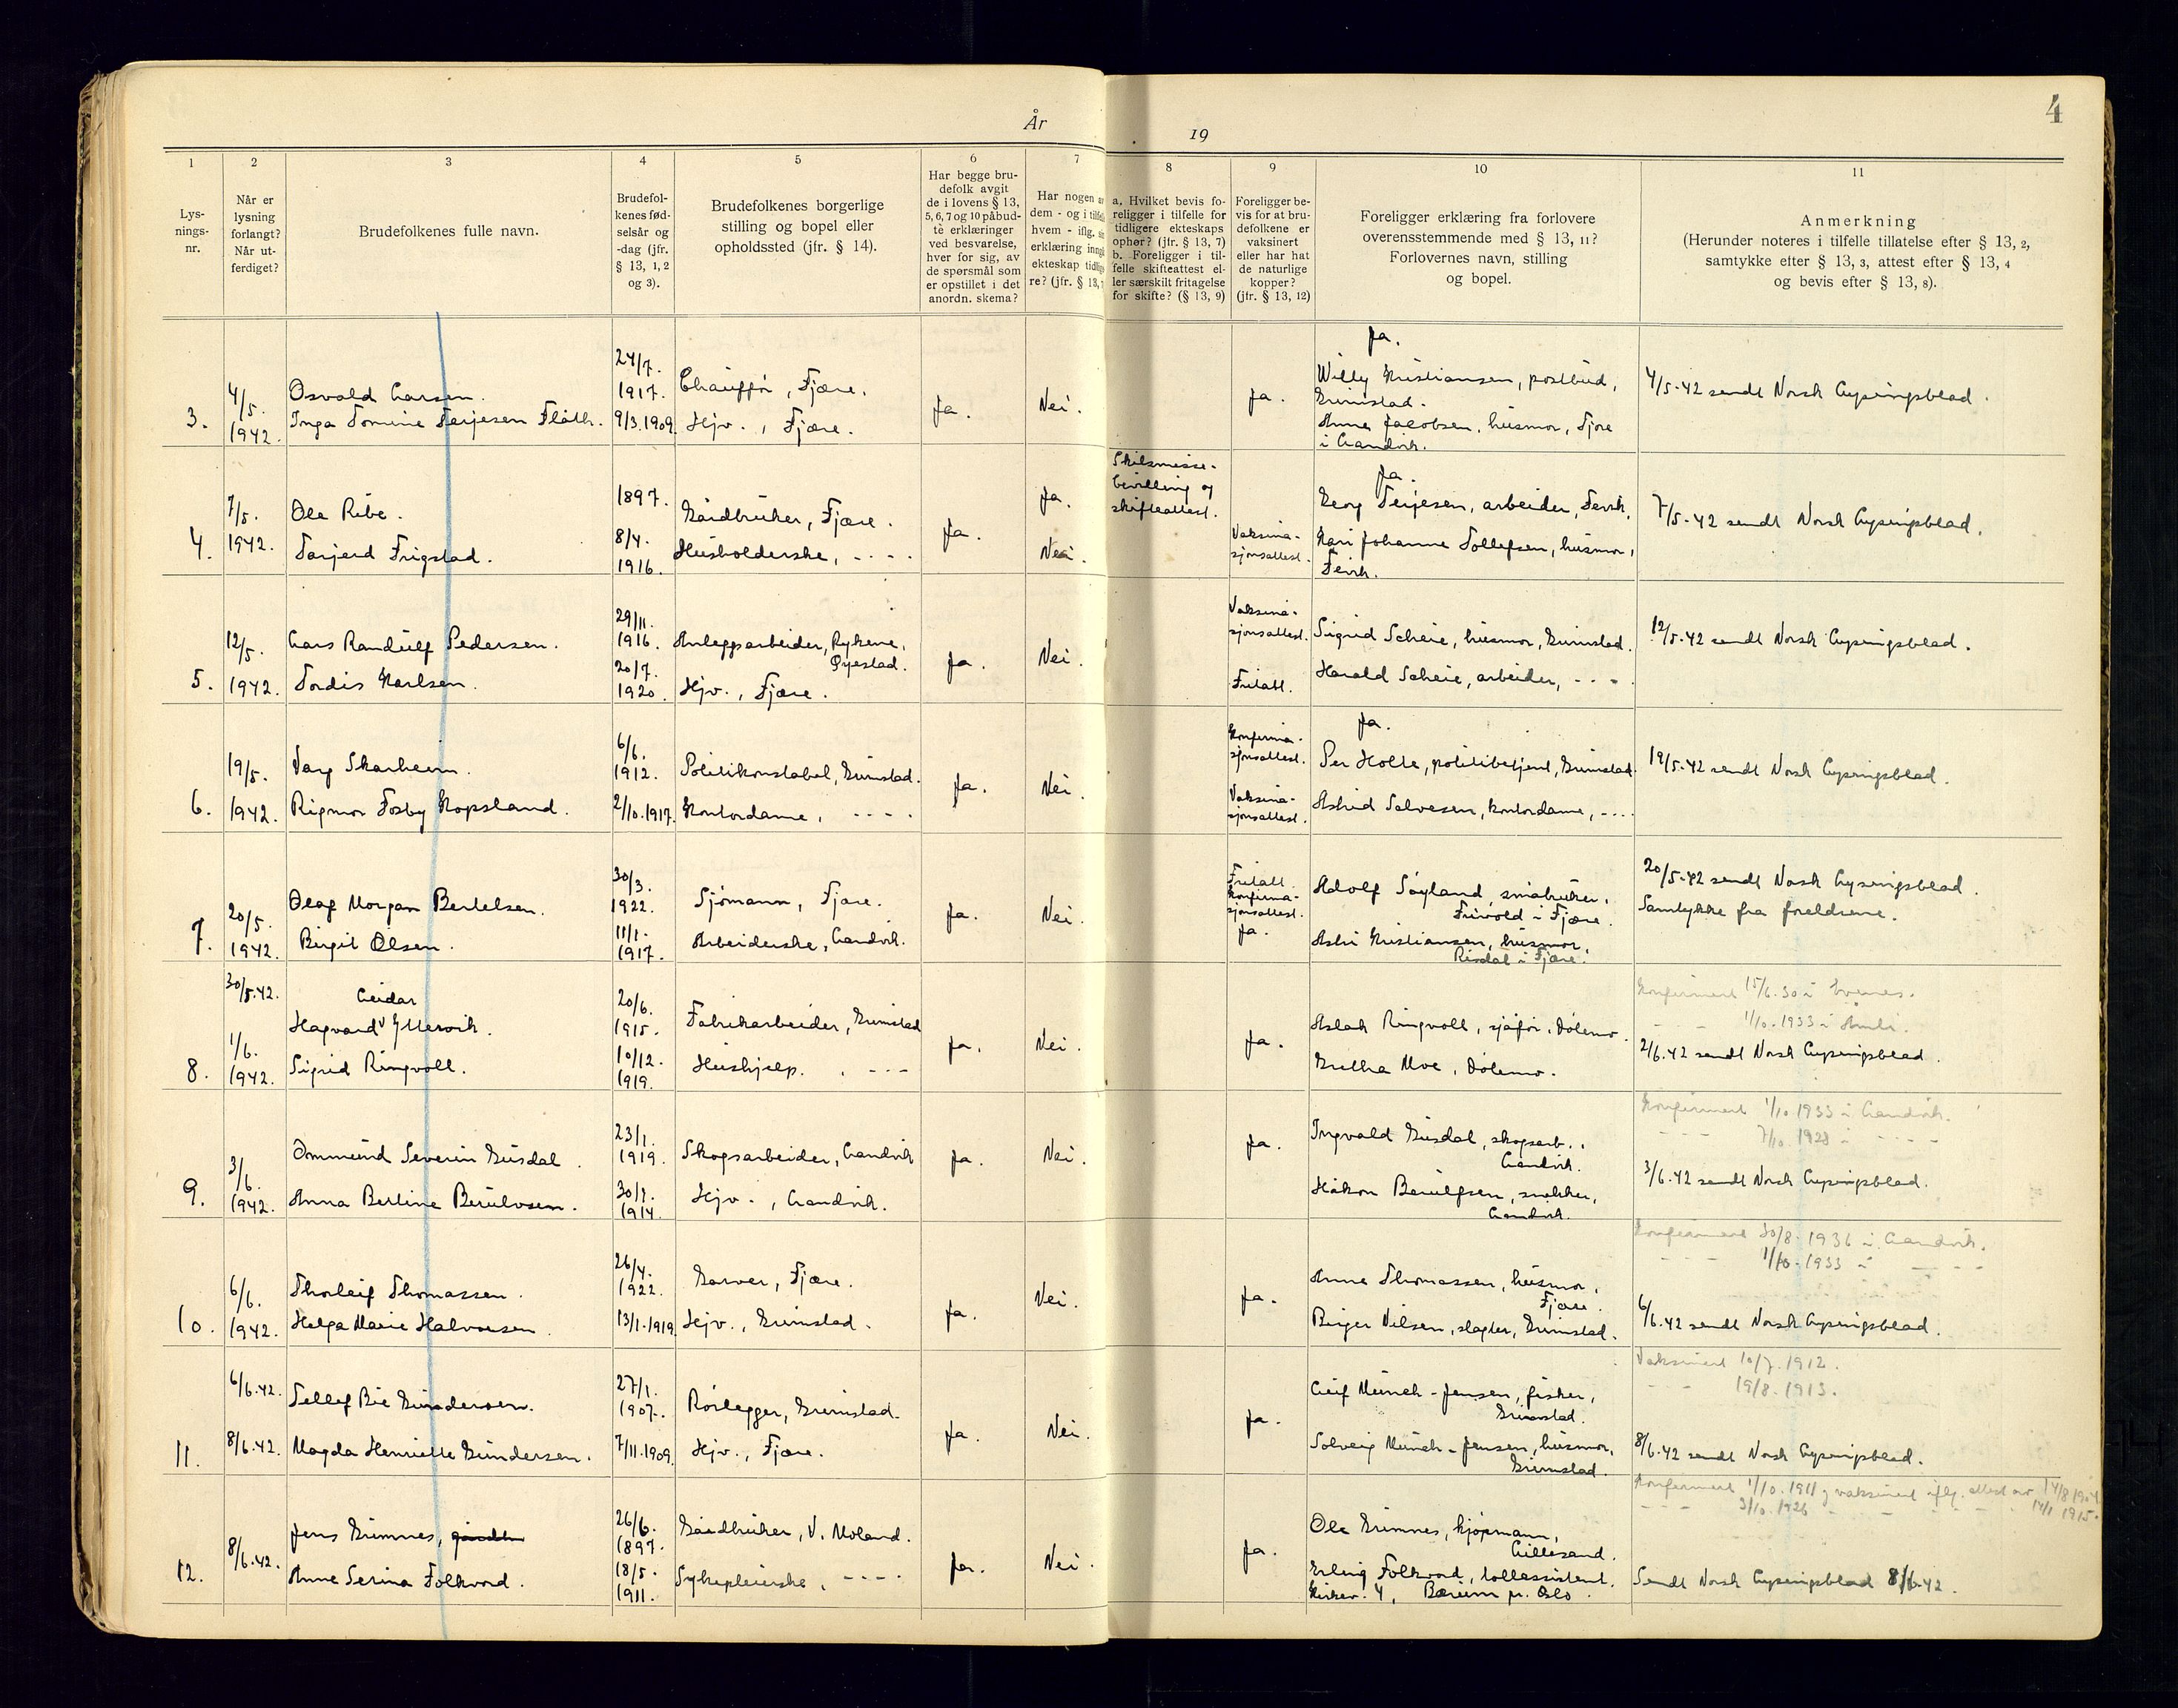 År 19
4
1
2
3
4
5
6
7
8
9
10
11
Lys-
nings-
nr.
Når er
lysning
forlangt?
Når ut-
ferdiget?
Brudefolkenes fulle navn.
Brudefol-
kenes fød-
selsår og
-dag (jfr.
§ 13, 1, 2
og 3).
Brudefolkenes borgerlige
stilling og bopel eller
opholdssted (jfr. § 14).
Har begge bru-
defolk avgit
de i lovens § 13,
5, 6, 7 og 10 påbud-
te erklæringer
ved besvarelse,
hver for sig, av
de spørsmål som
er opstillet i det
anordn. skema?
Har nogen
dem - og i
hvem - iflg.
erklæring
ekteskap
re? (jfr. § 13,
a. Hvilket bevis fo-
religger i tilfelle for
tidligere ekteskaps
ophør? (jfr. § 13, 7)
b. Foreligger i til-
felle skifteattest el-
ler særskilt fritagelse
for skifte? (§ 13, 9)
Foreligger be-
vis for at bru-
defolkene er
vaksinert
eller har hat
de naturlige
kopper?
(jfr. § 13, 12)
Foreligger erklæring fra forlovere
overensstemmende med § 13, 11?
Forlovernes navn, stilling
og bopel.
Anmerkning
(Herunder noteres i tilfelle tillatelse efter § 13, 2,
samtykke efter § 13, 3, attest efter § 13, 4
og bevis efter § 13, 8).
3.
4/5.
1942.
Osvald Larsen.
Inga Tomine Terjesen Flåth.
24/7.
1917.
9/3.1909.
Chauffør, Fjære.
Hjv., Fjære.
Ja.
Nei.
Ja.
Ja.
Willy Kristiansen, postbud,
Grimstad.
Anna Jacobsen, husmor, Fjøre
i Landvik.
4/5-42 sendt Norsk Lysningsblad.
4.
7/5.
1942.
Ole Ribe.
Tarjerd Frigstad.
1897.
8/4.
1916.
Gårdbruker, Fjære.
Husholderske, - - - -
Ja.
Ja.
Nei.
Skilsmisse-
bevilling og
skifteattest.
Vaksina-
sjonsattest.
Ja.
Georg Terjesen, arbeider, Fevik,
Kari Johanne Tollefsen, husmor,
Fevik.
7/5-42 sendt Norsk Lysningsblad.
5.
12/5.
1942.
Lars Randulf Pedersen.
Tordis Karlsen.
29/11.
1916.
20/7.
1920.
Anleggsarbeider, Rykene,
Øyestad.
Hjv., Fjære.
Ja.
Nei.
Vaksina-
sjonsattest.
Fritatt.
Sigrid Scheie, husmor, Grimstad.
Harald Scheie, arbeider, - - -
12/5-42 sendt Norsk Lysningsblad.
6.
19/5.
1942.
Varg Skarheim.
Rigmor Fosby Kopsland.
6/6.
1912.
2/10.1917.
Politikonstabel, Grimstad.
Kontordame, - - - -
Ja.
Nei.
Konfirma-
sjonsattest.
Vaksina-
sjonsattest.
Ja.
Per Holte, politibetjent, Grimstad.
Astrid Salvesen, kontordame, - - - -
19/5-42 sendt Norsk Lysningsblad.
7.
20/5.
1942.
Olaf Morgan Bertelsen.
Birgit Olsen.
30/3.
1922.
11/1.
1917.
Sjømann, Fjære.
Arbeiderske, Landvik.
Ja.
Nei.
Fritatt.
Konfirma-
sjonsattest.
Ja.
Adolf Søyland, småbruker,
Frivold i Fjære.
Astri Kristiansen, husmor,
Risdal i Fjære.
20/5-42 sendt Norsk Lysningsblad.
Samtykke fra foreldrene.
8.
30/5.42.
1/6.
1942.
Leidar
Hagvard Yttervik.
Sigrid Ringvoll.
20/6.
1915.
10/12.
1919.
Fabrikarbeider, Grimstad
Hushjelp. , - - -
Ja.
Nei.
Ja.
Aslak Ringvoll, sjåfør, Dølemo.
Gretha Moe, Dølemo.
Konfirmert 15/6.30 i
- - 1/10.1933 i Åmli.
2/6.42 sendt Norsk Lysningsblad.
9.
3/6.
1942.
Ommund Severin Gusdal.
Anna Bertine Berulvsen.
23/1.
1919.
30/1.
1914.
Skogsarbeider, Landvik
Hjv., Landvik.
Ja.
Nei.
Ja.
Ingvald Gusdal, skogsarb.,
Landvik.
Håkon Berulfsen, snekker,
Landvik.
Konfirmert 1/10.1933 i Landvik.
- - - 7/10.1928 i - - - -
3/6.42 sendt Norsk Lysningsblad.
10.
6/6.
1942.
Thorleif Thomassen.
Helga Marie Halvorsen.
26/4.
1922.
13/1.1919.
Garver, Fjære.
Hjv., Grimstad.
Ja.
Nei.
Ja.
Anna Thomassen, husmor,
Fjære.
Birger Nilsen, slagter, Grimstad.
Konfirmert 30/8-1936 i Landvik.
- - - 1/10-1933 i - - -
6/6.42 sendt Norsk Lysningsblad.
11.
6/6.42.
8/6.42.
Tellef Bie Gundersen.
Magda Henriette Gundersen.
27/1.
1907.
7/11.1909.
Rørlegger, Grimstad.
Hjv., Fjære.
Ja.
Nei.
Ja.
Leif Münch-Jensen, fisker,
Grimstad.
Solveig Münch-Jensen, husmor,
Grimstad.
Vaksinert 10/7.1912.
- - - 19/8-1913.
8/6.42 sendt Norsk Lysningsblad.
12.
8/6.42.
Jens Grimnes,
Anne Serina Folkvord.
26/6.
1897.
18/5.
1911.
Gårdbruker, V. Moland.
Sykepleierske, - - - -
Ja.
Nei.
Ja.
Ole Grimnes, kjøpmann,
Lillesand.
Erling Folkvord, tollassistent,
Kirkev. 4, Bærum pr. Oslo.
Konfirmert 1/10.1911 og vaksinert iflg. attest av 14/8 1904
- - - 3/10.1926 - - - 14/1 1915.
Sendt Norsk Lysningsblad 8/6-42.